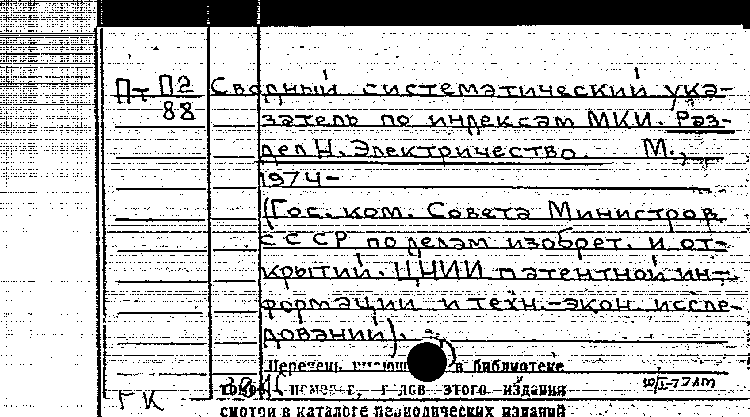 Пт П2/88 Сводный систематический ука-
затель по индексам МКИ. Раз-
дел Н. Электричество. М.,
1974-
(Гос. ком. Совета Министров
СССР по делам изобрет. и от-
крытий. ЦНИИ патентной ин-
формации и техн.-экон. иссле-
дований).
Перечень в библиотеке
этого издания
ГК
смотри в каталоге периодических изданий